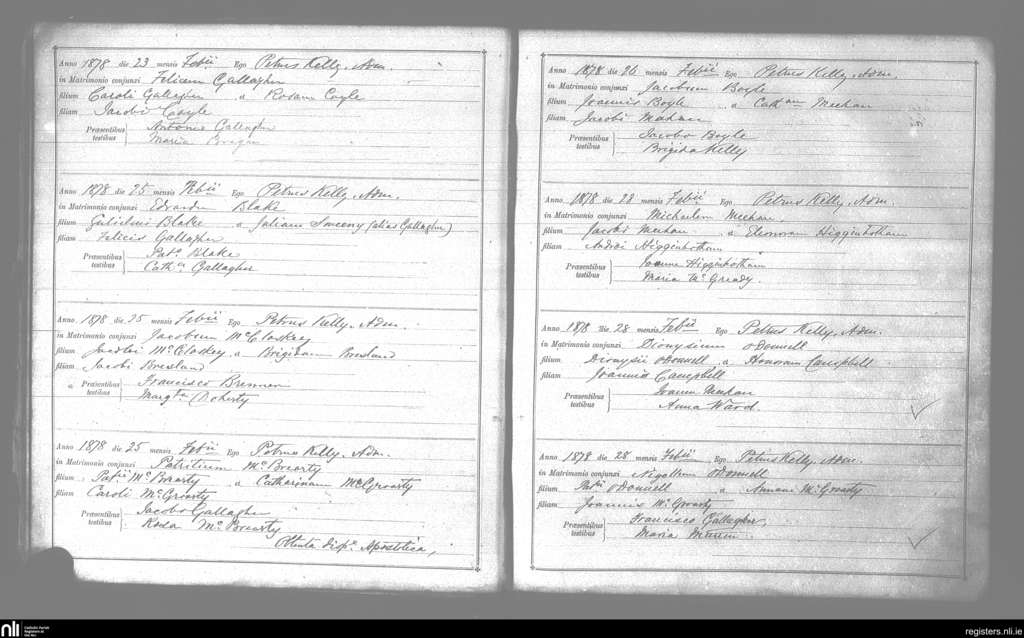 Anno 1878 die 23 mensis Febii Ego Petrus Kelly, Adm.
in Matrimonio conjunxi Felicem Gallagher
filium Caroli Gallagher a Rosam Coyle
filiam Jacobi Coyle
Præsentibus testibus Antonio Gallagher
Maria
Anno 1878 die 25 mensis Febii Ego Petrus Kelly, Adm.
in Matrimonio conjunxi Edvardu Blake
filium Gulielmi Blake a Juliam Sweeny (alias Gallagher)
filiam Felicis Gallagher
Præsentibus testibus Pat. Blake
Cath. Gallagher
Anno 1878 die 25 mensis Febii Ego Petrus Kelly, Adm.
in Matrimonio conjunxi Jacobum McCloskey
filium Jacobi McCloskey a Brigidam Bresland
filiam Jacobi Bresland
a Præsentibus testibus Francisco Brennan
Margta Doherty
Anno 1878 die 25 mensis Febii Ego Petrus Kelly, Adm.
in Matrimonio conjunxi Patritium McBrearty
filium Patii McBrearty a Catharinam McGroarty
filiam Caroli McGroarty
Præsentibus testibus Jacobo Gallagher
Rosa McBrearty
Obtenta dispe Apostolica,
Anno 1878 die 26 mensis Febii Ego Petrus Kelly, Adm.
in Matrimonio conjunxi Jacobum Boyle
filium Joannis Boyle a Catham Meehan
filiam Jacobi Meehan
Præsentibus testibus Jacobo Boyle
Brigida Kelly
Anno 1878 die 28 mensis Febii Ego Petrus Kelly, Adm.
in Matrimonio conjunxi Michaelem Meehan
filium Jacobi Meehan a Eleonoram Higginbotham
filiam Andrei Higginbotham
Præsentibus testibus Joanne Higginbotham
Maria McGready.
Anno 1878 die 28 mensis Febii Ego Petrus Kelly, Adm.
in Matrimonio conjunxi Dionysium O'Donnell
filium Dionysii O'Donnell a Honoram Campbell
filiam Joannis Campbell
Præsentibus testibus Joanne Meehan
Anna Ward.
Anno 1878 die 28 mensis Febii Ego Petrus Kelly, Adm.
in Matrimonio conjunxi Nigellum O'Donnell
filium Patii O'Donnell a Annam McGroarty
filiam Joannis McGroarty
Præsentibus testibus Francisco Gallagher,
Maria
nli Catholic Parish Registers at the NLI
registers.nli.ie